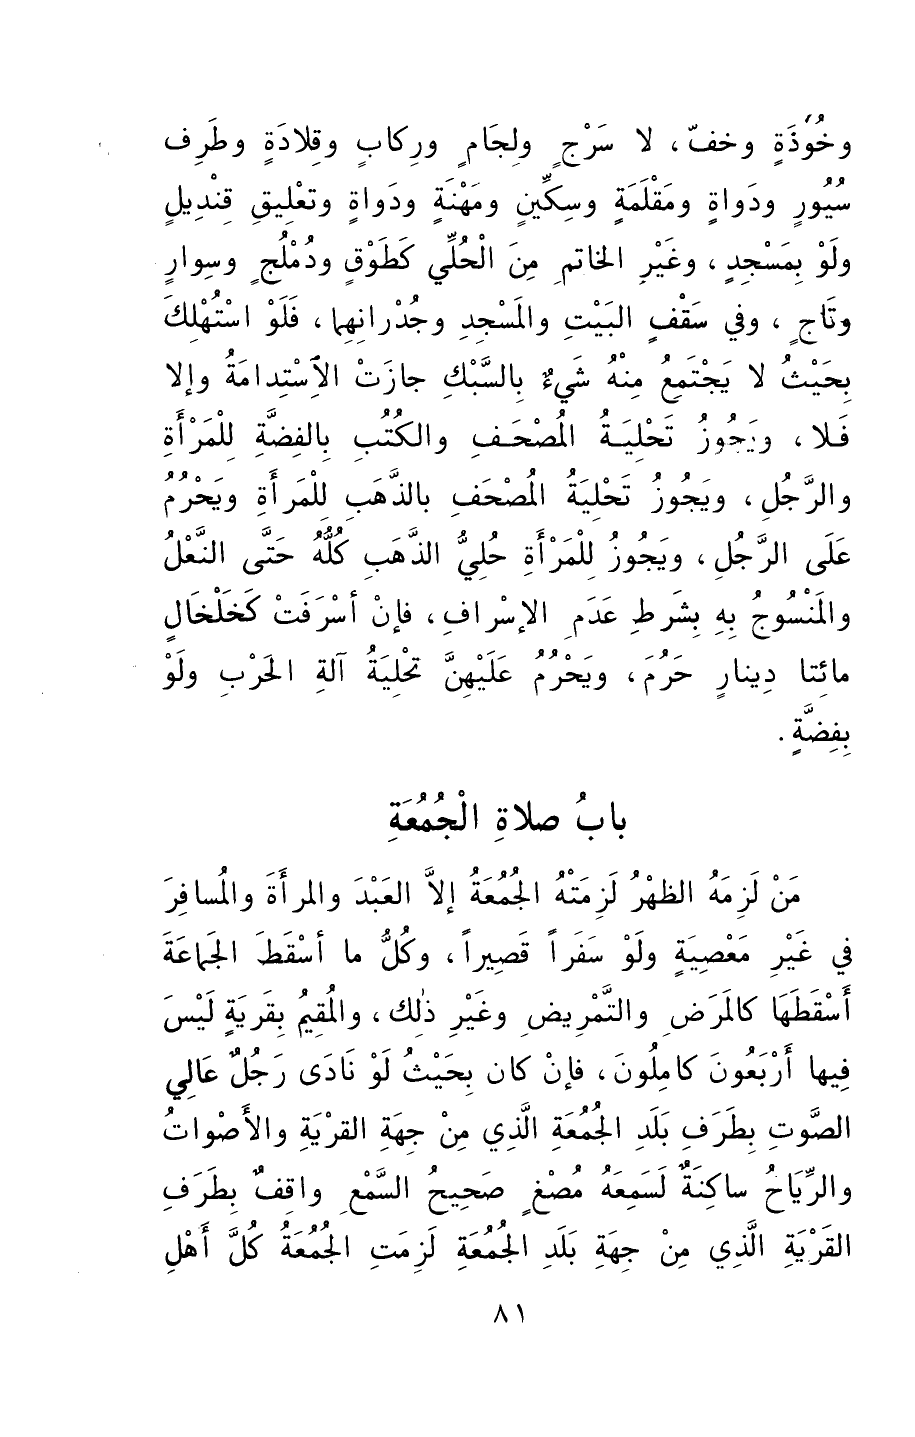 وخُوْذَةٍ وخفّ، لا سَرْجٍ ولِجَامٍ ورِكابٍ وقِلادَةٍ وطَرِف
سُيُورٍ ودَواةٍ ومَقْلَمَةٍ وسِكِّينٍ ومَهْنَةٍ ودَواةٍ وتَعْلِيقِ قِنْدِيلٍ
ولَوْ بِمَسْجِدٍ، وغَيْرِ الخاتمِ مِنَ الْحُلِّي كَطَوْقٍ ودُمْلُجٍ وسِوارٍ
وتَاجٍ، وفي سَقْفِ البَيْتِ والمَسْجِدِ وجُدْرانِهِما، فَلَوْ اسْتُهْلِكَ
بِحَيْثُ لا يَجْتَمِعُ مِنْهُ شَيءٌ بِالسَّبْكِ جازَتْ الاِسْتِدامَةُ وإلا
فَلا، ويَجُوزُ تَحْلِيَةُ المُصْحَفِ والكُتُبِ بِالفِضَّةِ لِلْمَرْأَةِ
والرَّجُلِ، ويَجُوزُ تَحْلِيَةُ المُصْحَفِ بالذَّهَبِ لِلْمَرأَةِ ويَحْرُمُ
عَلَى الرَّجُلِ، ويَجُوزُ لِلْمَرْأَةِ حُلِيُّ الذَّهَبِ كُلُّهُ حَتَّى النَّعْلُ
والمَنْسُوجُ بِهِ بِشَرطِ عَدَمِ الإسْرافِ، فإنْ أسْرَفَتْ كَخَلْخَالٍ
مائِتا دِينارٍ حَرُمَ، ويَحْرُمُ عَلَيْهِنَّ تحْلِيَةُ آلةِ الحَرْبِ ولَوْ
بِفِضَّةٍ.
بابُ صلاةِ الْجُمُعَةِ
مَنْ لَزِمَهُ الظهْرُ لَزِمَتْهُ الجُمُعَةُ إلاَّ العَبْدَ والمرأَةَ والمُسافِرَ
في غَيْرِ مَعْصِيَةٍ ولَوْ سَفَراً قَصِيراً، وكُلُّ ما أسْقَطَ الجَماعَةَ
أَسْقَطَهَا كالمَرَضِ والتَّمْرِيضِ وغَيْرِ ذٰلك، والمُقِيمُ بِقَريَةٍ لَيْسَ
فِيها أَرْبَعُونَ كامِلُونَ، فإنْ كان بِحَيْثُ لَوْ نَادَى رَجُلٌ عَالِي
الصَّوتِ بِطَرَفِ بَلَدِ الجُمُعَةِ الَّذِي مِنْ جِهَةِ القرْيَةِ والأَصْواتُ
والرِّيَاحُ ساكِنَةٌ لَسَمِعَهُ مُصْغٍ صَحِيحُ السَّمْعِ واقِفٌ بِطَرَفِ
القَرْيَةِ الَّذِي مِنْ جِهَةِ بَلَدِ الجُمُعَةِ لَزِمَتِ الجُمُعَةُ كُلَّ أَهْلِ
٨١